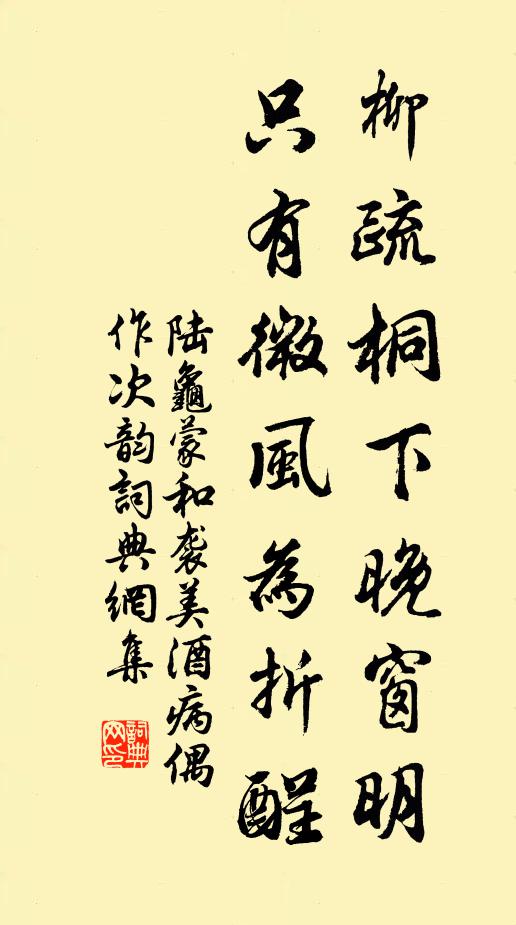 柳疏桐下晚窗明
只有微風為折酲
陆龜蒙和袭美酒病偶
作次韵詞典網集
詞典
网印